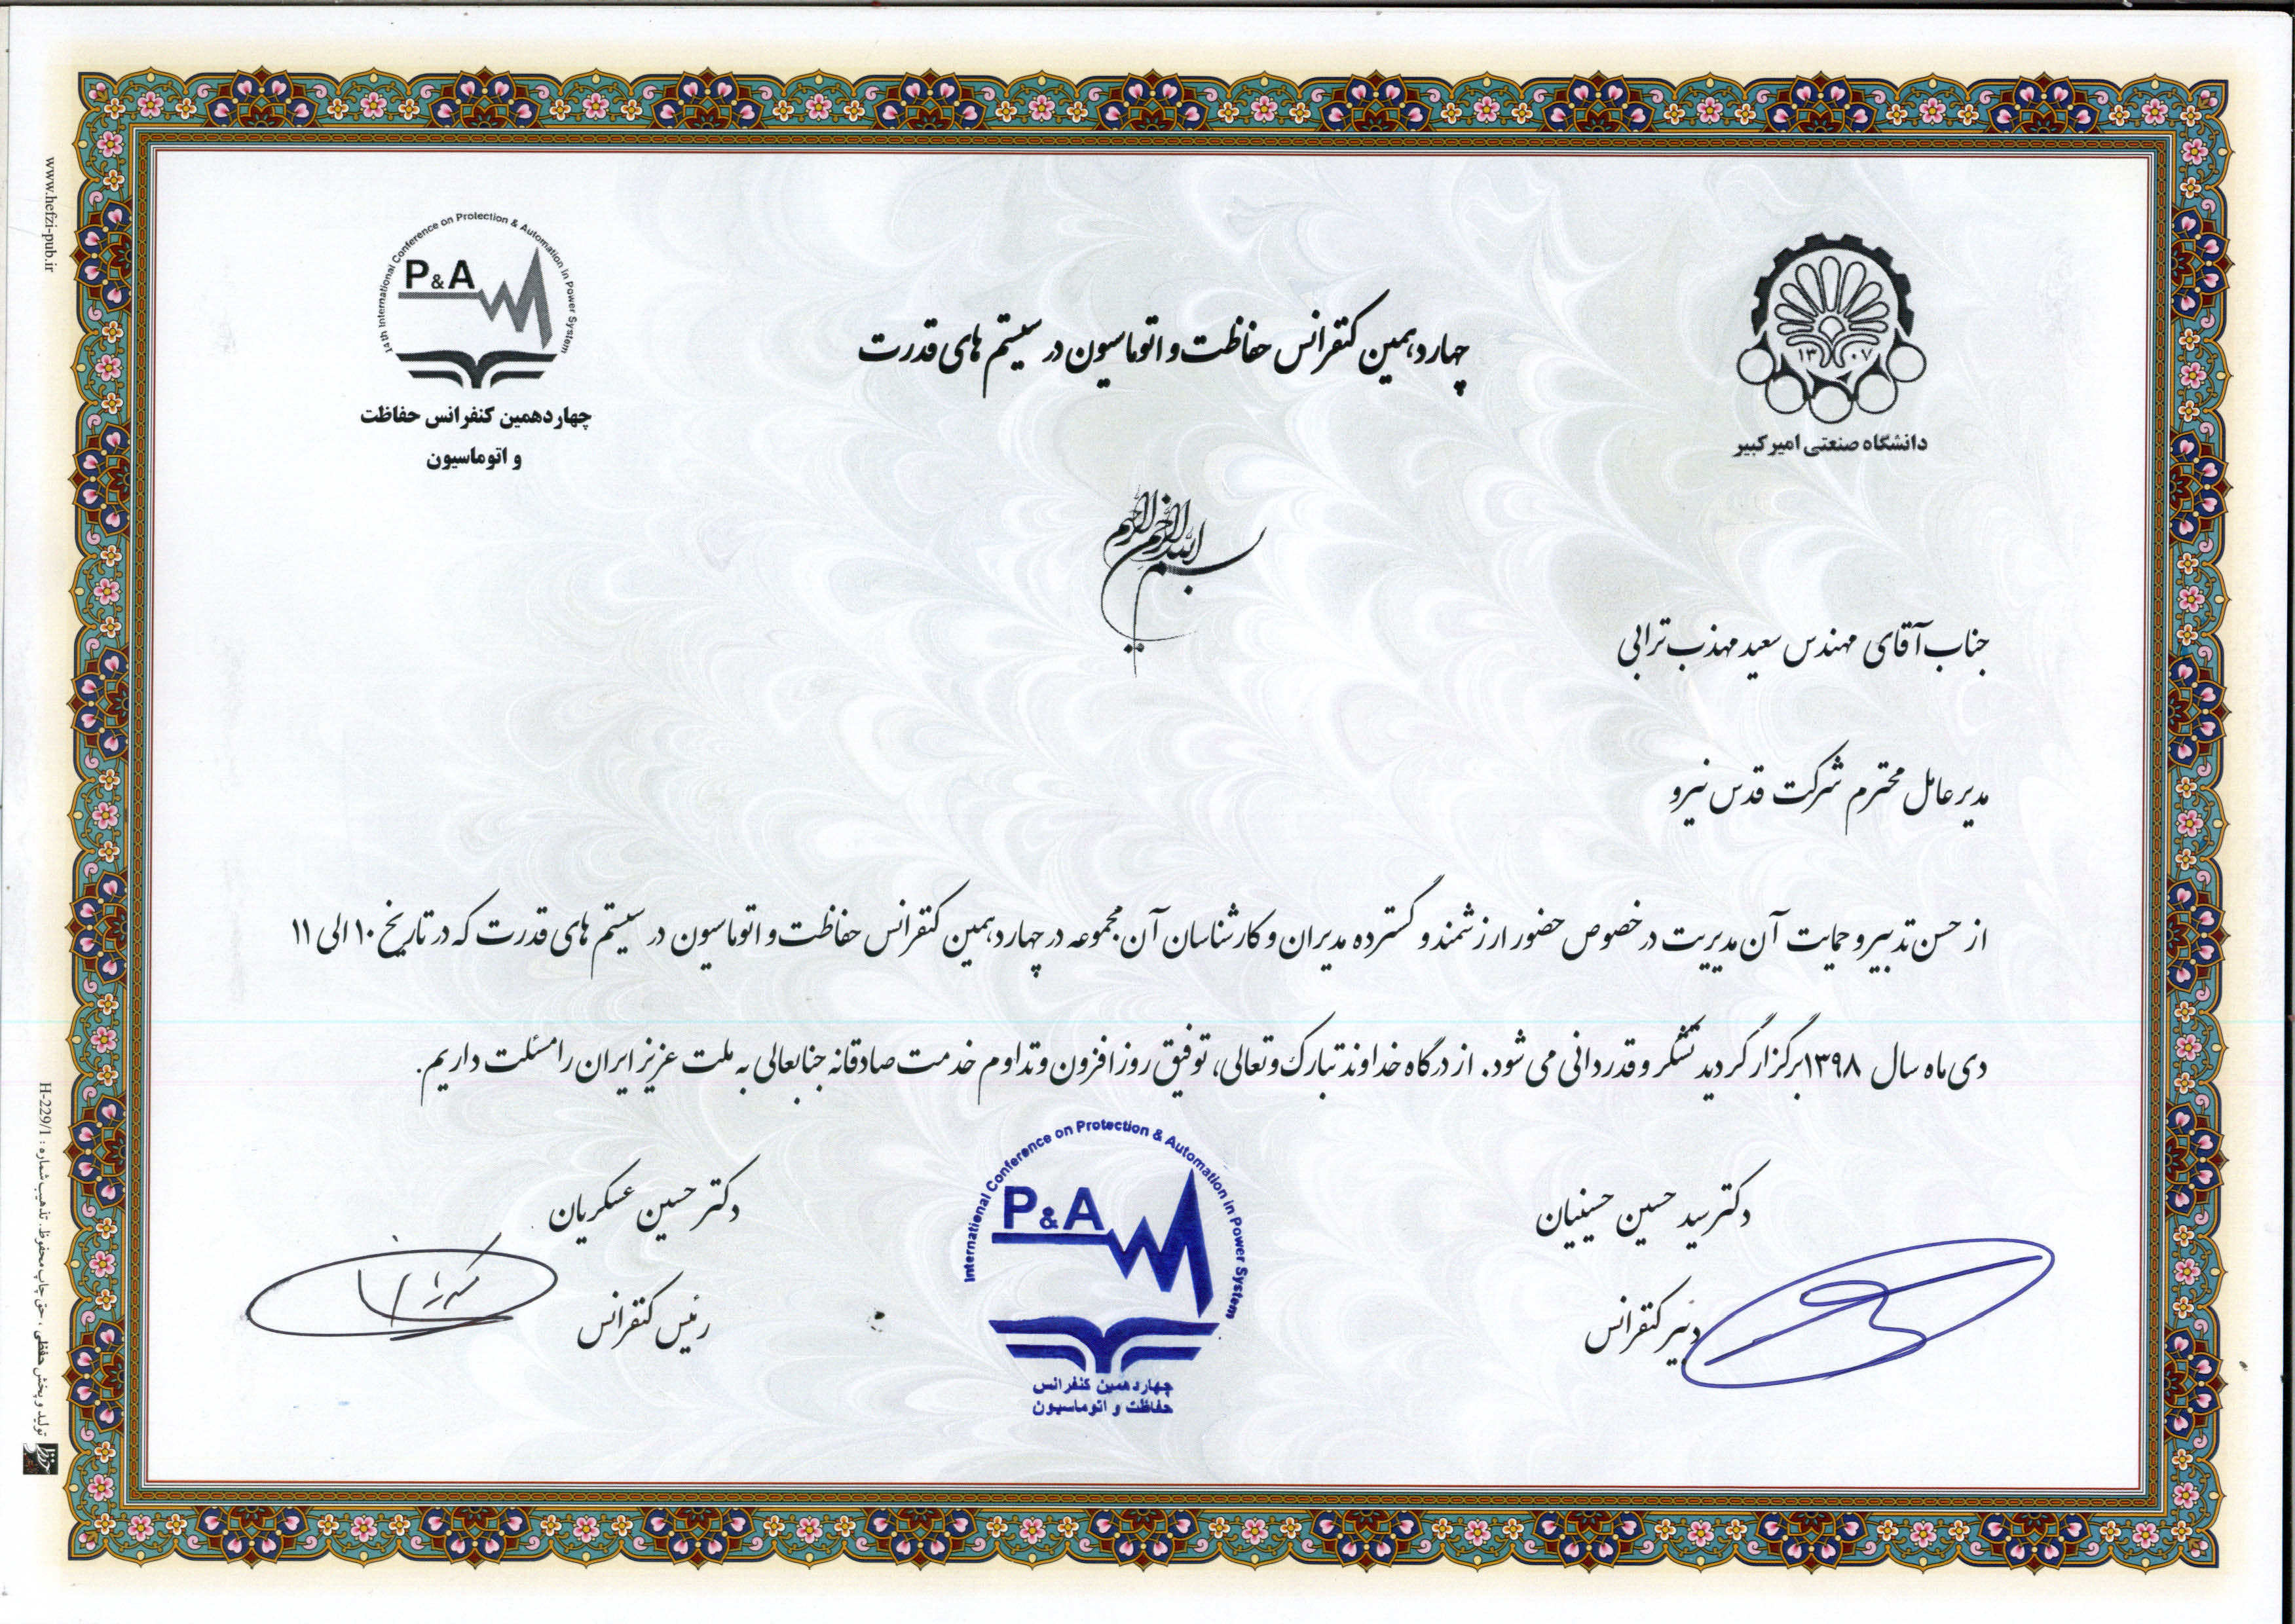 14th International Conference on Protection & Automation in Power System
P&A
چهاردهمین کنفرانس حفاظت
و اتوماسیون
چهاردهمین کنفرانس حفاظت و اتوماسیون در سیستم های قدرت
۱۳۰۷
دانشگاه صنعتی امیرکبیر
بسم الله الرحمن الرحیم
جناب آقای مهندس سعید مهذب ترابی
مدیرعامل محترم شرکت قدس نیرو
از حسن تدبیر و حمایت آن مدیریت در خصوص حضور ارزشمند و گسترده مدیران و کارشناسان آن مجموعه در چهاردهمین کنفرانس حفاظت و اتوماسیون در سیستم های قدرت که در تاریخ ۱۰ الی ۱۱
دی ماه سال ۱۳۹۸ برگزار گردید تشکر و قدردانی می شود. از درگاه خداوند تبارک و تعالی، توفیق روزافزون و تداوم خدمت صادقانه جنابعالی به ملت عزیز ایران را مسئلت داریم.
دکتر سید حسین حسینیان
دبیر کنفرانس
دکتر حسین عسکریان
رئیس کنفرانس
International Conference on Protection & Automation in Power System
P&A
چهاردهمین کنفرانس
حفاظت و اتوماسیون
www.hefzi-pub.ir
تولید و پخش حفظی ، حق چاپ محفوظ. تذهیب شماره : H-229/1